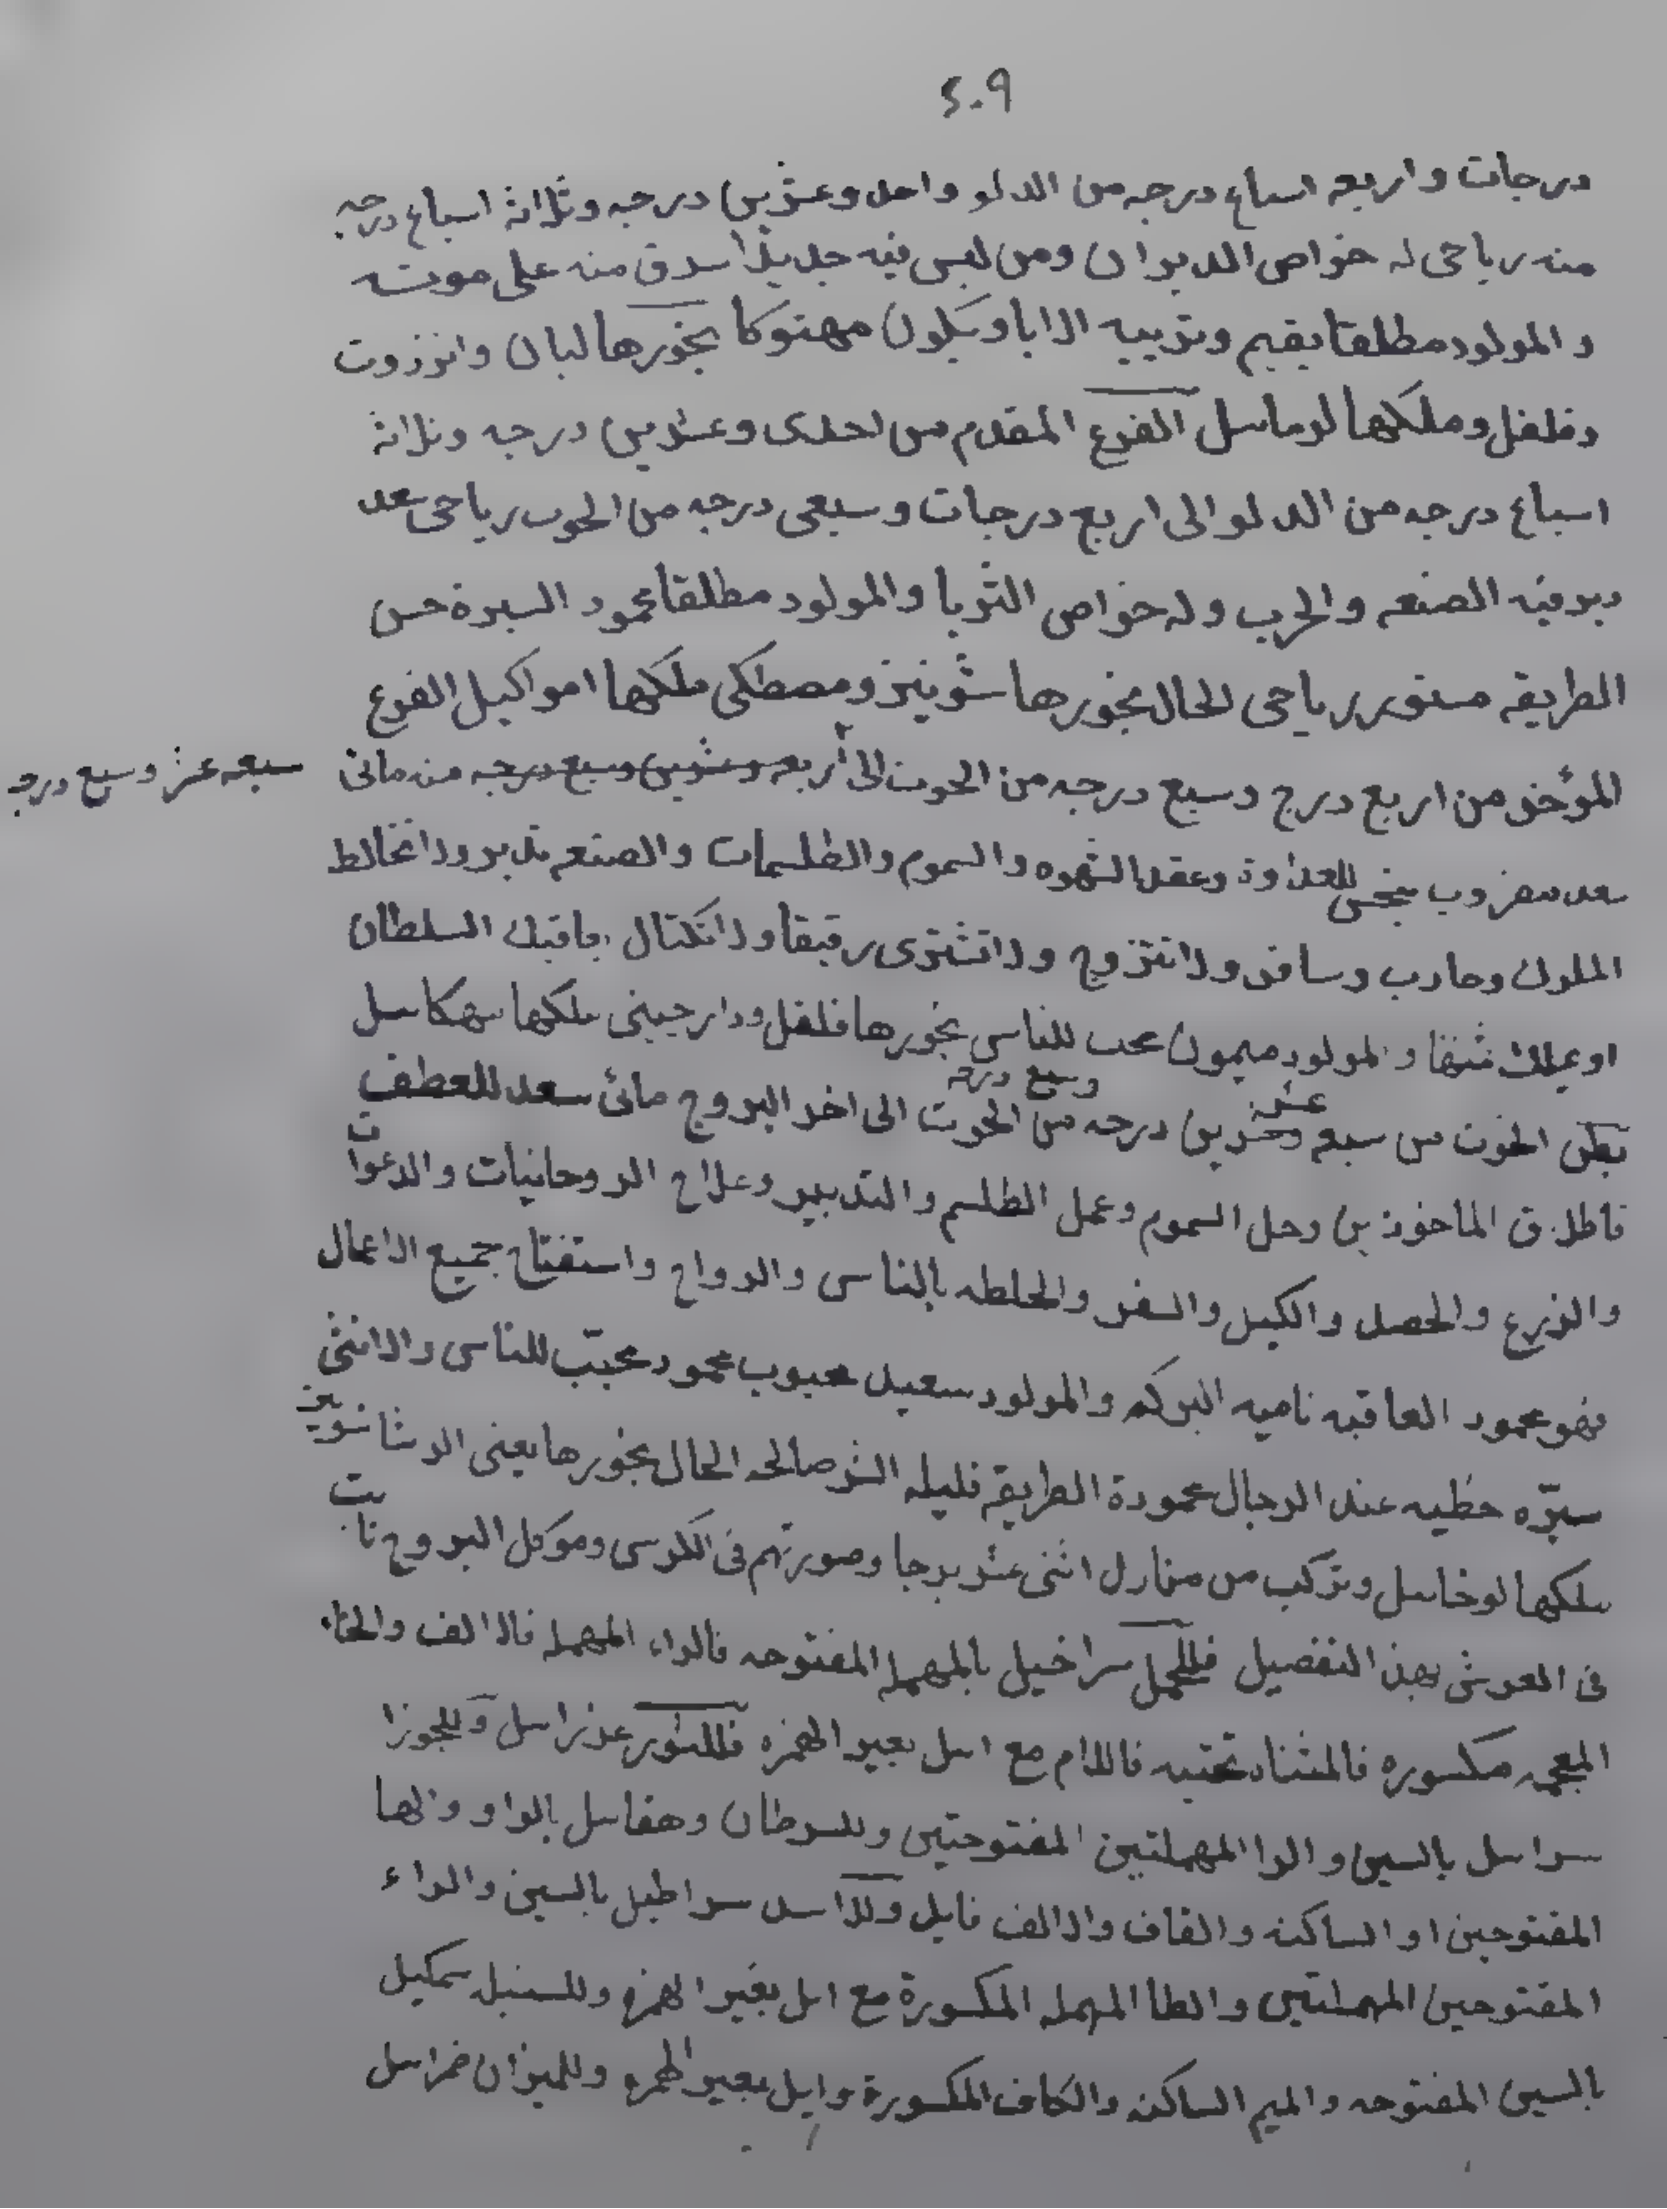 ٢٠٩
درجات واربعه اسباع درجه من الدلو واحد وعشرين درجه وثلاثة اسباع درجه
منه رياحى له خواص الدبران ومن لبس فيه جديدا سرق منه على موته
والمولود مطلقا يقيم وتربيه الاباويكون مهتوكا بخورها لبان وانزروت
وفلفل وملكها لوماىىل الفرع المقدم من احدى وعشرين درجه وثلاثة
اسباع درجه من الدلو الى اربع درجات وسبعى درجه من الحوت رياحى سعد
دبر فيه الصنعه والحرب وله خواص الثريا والمولود مطلقا محمود السيرة حسن
الطريقه مستور رياحى الحال بخورها شونيز ومصطكى ملكها امواكيل الفرع
المؤخر من اربع درج وسبع درجه من الحوت الى أربعه وعشرين وسبع درجه منه مائى سبعه عشر وسبع درجه
سعد ممزوج بنحس للعداوة وعقد الشهوه والسموم والطلسمات والصنعه تدبر ولا تخالط
الملوك وحارب وسافر ولا تتزوج ولا تشترى رقيقا ولا تكتال السلطان
او يملك والمولود ميمون محب للناس بخورها فلفل ودارصينى ملكها
بطن الحوت من سبعه عشر درجه وسبع درجه من الحوت الى اخر البروج مائى سعد للعطف
فاطلاق الماخوذين وحل السموم وعمل الطلسم والتدبير وعلاج الروحانيات والدعوات
والزرع والحصد والكيل والسفر والخلطه بالناس والرواح واستفتاح جميع الاعمال
فهو محمود العاقبه ناميه البركه والمولود سعيد محبوب محمود محبّب للناس والانثى
سيّره حظيه عند الرجال محمودة الطريقه قليله الشر صالحه الحال بخورها يعنى الرشا شونيز
ملكها لوخاىىل وتركب من منازل اثنى عشر برجا وصورتهم فى الكرسى وموكل البروج ثابت
فى العرش بهذ التفصيل فللحمل سراخيل بالمهمله المفتوحه فالراء المهمله فالالف والخاء
المعجمه مكسوره فالمثناه تحتيه فاللام مع اىل بغير الهمزه فللثور عزراىل وللجوزا
سراىل بالسين والرا المهملتين المفتوحتين وللسرطان وهقاىىل بالواو والها
المفتوحين او الساكنه والقاف والالف فايل وللاسد سراطيل بالسين والراء
المفتوحين المهملتين والطا المهمله المكسورة مع اىل بغير الهمزه وللسنبله سمكيل
بالسين المفتوحه والميم الساكنه والكاف المكسورة وايل بغير الهمزه وللميزان